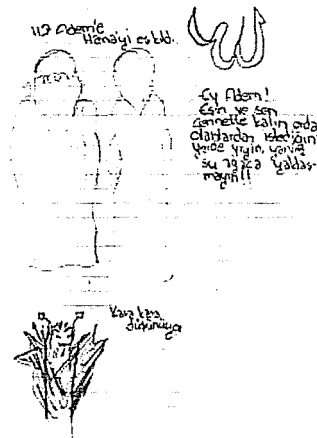 Hz Adem'e
Havva'yi es kıldı.
Ey Adem!
Eşin ve sen
Cennette kalın orda
olanlardan istediğin
yerde yiyin, yanlız
şu ağaca yaklaş-
mayın!!
Kara kara
düşünüyor